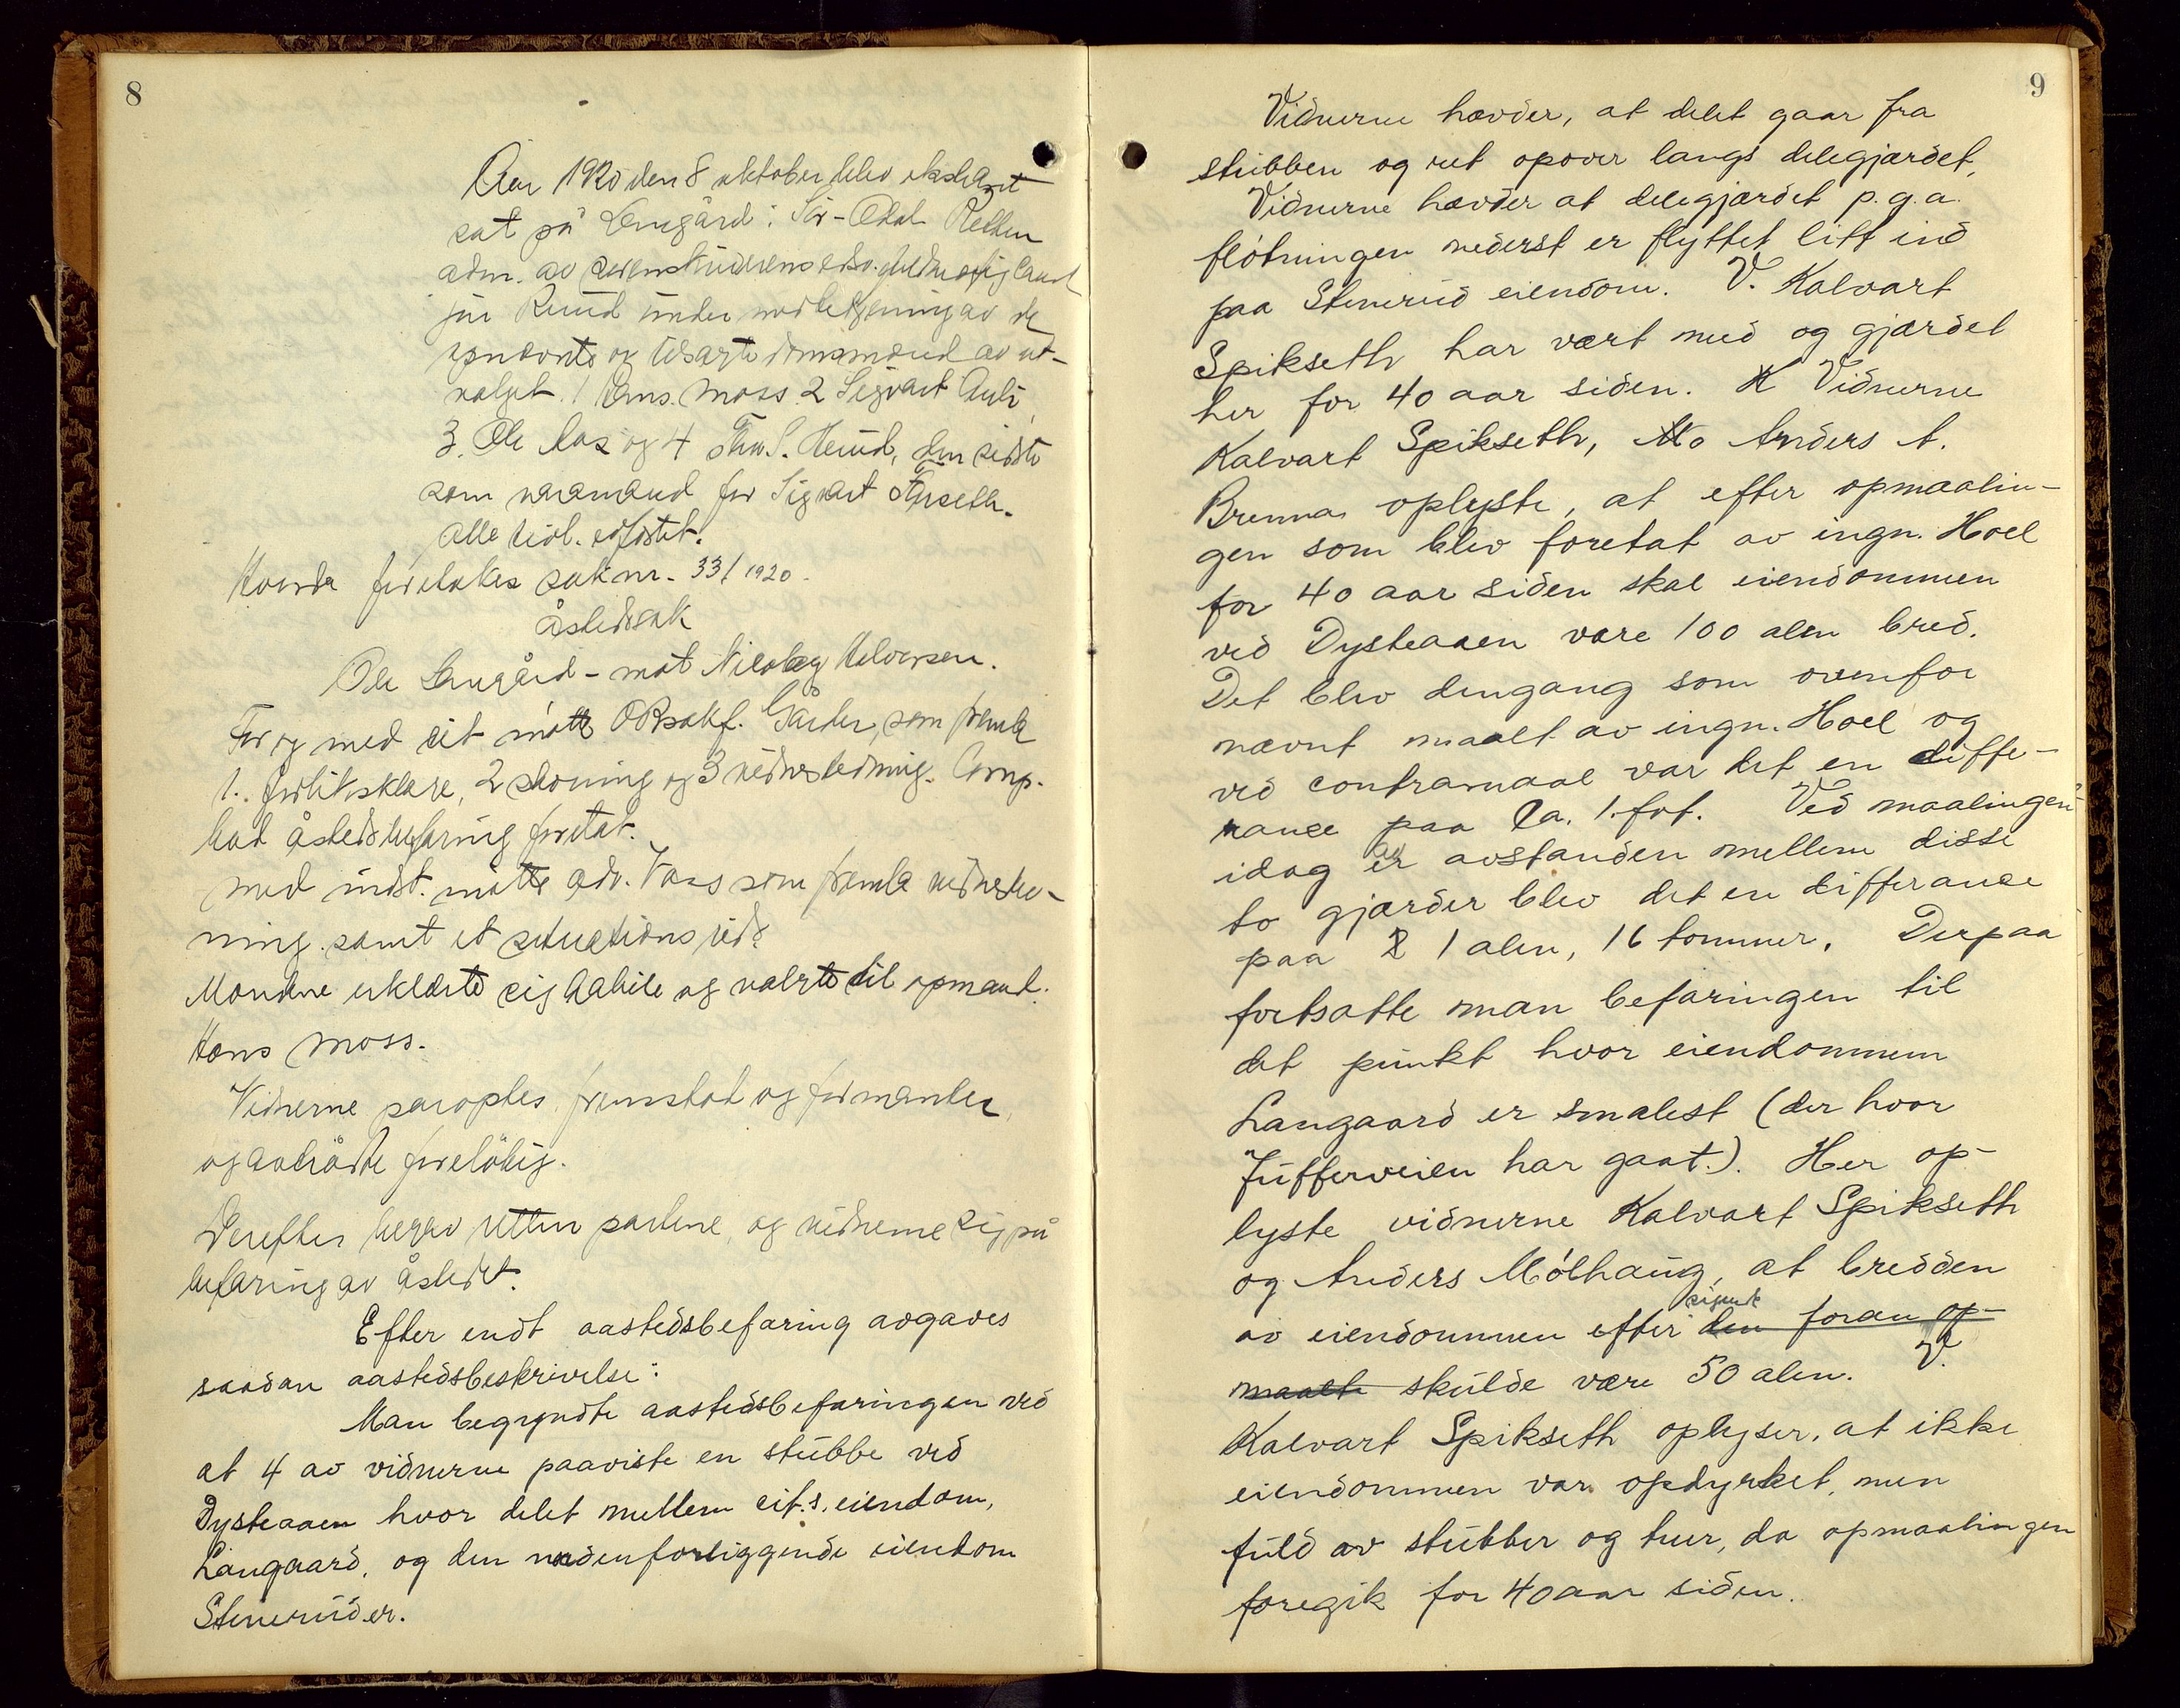 8
Aar 1920 den 8 oktober blev ekstraret
sat på Langård i Sør-Odal. Retten
adm. av sorenskriverens edsv. fuldmægtig cand
jur Ruud under medbetjening av de
opnævnte og tilsagte domsmænd av ut-
valget. 1 Hans Moss 2 Sigvart Auli,
3. Ole Aas og 4 Thv. S. Herud, den sidste
som varamand for Sigvart Furseth.
Alle tidl. edfæstet.
Hvorda foretokes sak nr. 33/1920.
åstedssak
Ole Langård - mot Nicolay Halvorsen.
For og med cit. møtte ORsakf. Gårder, som fremla
1. forliksklage, 2 stevning og 3 vidnestevning. Comp.
bad åstedsbefaring foretat.
Med indst. møtte adv. Vaas som fremla vidnestev-
ning samt et situationsrids.
Mændene erklærte sig habile og valgte til opmand:
Hans Moss.
Vidnerne paroptes fremstod og formantes
og avtrådte foreløbig.
Derefter begav retten partene, og vidnerne sig på
befaring av åstedet.
Efter endt aastedsbefaring avgaves
saadan aastedsbeskrivelse:
Man begynndte aastedsbefaringen ved
at 4 av vidnerne paaviste en stubbe ved
Dysteaaen hvor delet mellem cit.s. eiendom,
Langaard, og den nedenforliggende eiendom
Stenerud er.
9
Vidnerne hævder, at delet gaar fra
stubben og ret opover langs delegjærdet,
Vidnerne hævder at delegjærdet p.g.a.
fløtningen nederst er flyttet litt ind
paa Stenerud eiendom. V. Kalvart
Spikseth har vært med og gjærdet
her for 40 aar siden. Vidnerne
Kalvart Spikseth, Mo Anders A.
Brenna oplyste, at efter opmaalin-
gen som blev foretat av ingn. Hoel
for 40 aar siden skal eiendommen
ved Dysteaaen være 100 alen bred.
Det blev dengang som ovenfor
nævnt maalt av ingn. Hoel og
ved contramaal var det en diffe-
rance paa Ca. 1. fot. Ved maalingen
idag av avstanden mellem disse
to gjærder blev det en differance
paa 2 1 alen, 16 tommer. Derpaa
fortsatte man befaringen til
det punkt hvor eiendommen
Langaard er smalest (der hvor
Jufferveien har gaat.). Her op-
lyste vidnerne Kalvart Spikseth
og Anders Mólhaug, at bredden
av eiendommen efter den foran op-
maalte skulde være 50 alen. V.
Kalvart Spikseth oplyser, at ikke
eiendommen var opdyrket, men
fuld av stubber og tuer, da opmaalingen
foregik for 40 aar siden.